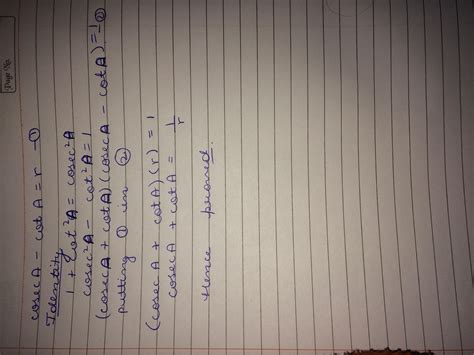 Page No.
cosecA - cotA = r - ①
Identity
1 + cot²A = cosec²A
cosec²A - cot²A = 1
(cosecA + cotA)(cosecA - cotA) = 1 - ②
putting ① in ②
(cosecA + cotA)(r) = 1
cosecA + cotA = 1/r
Hence prooved.